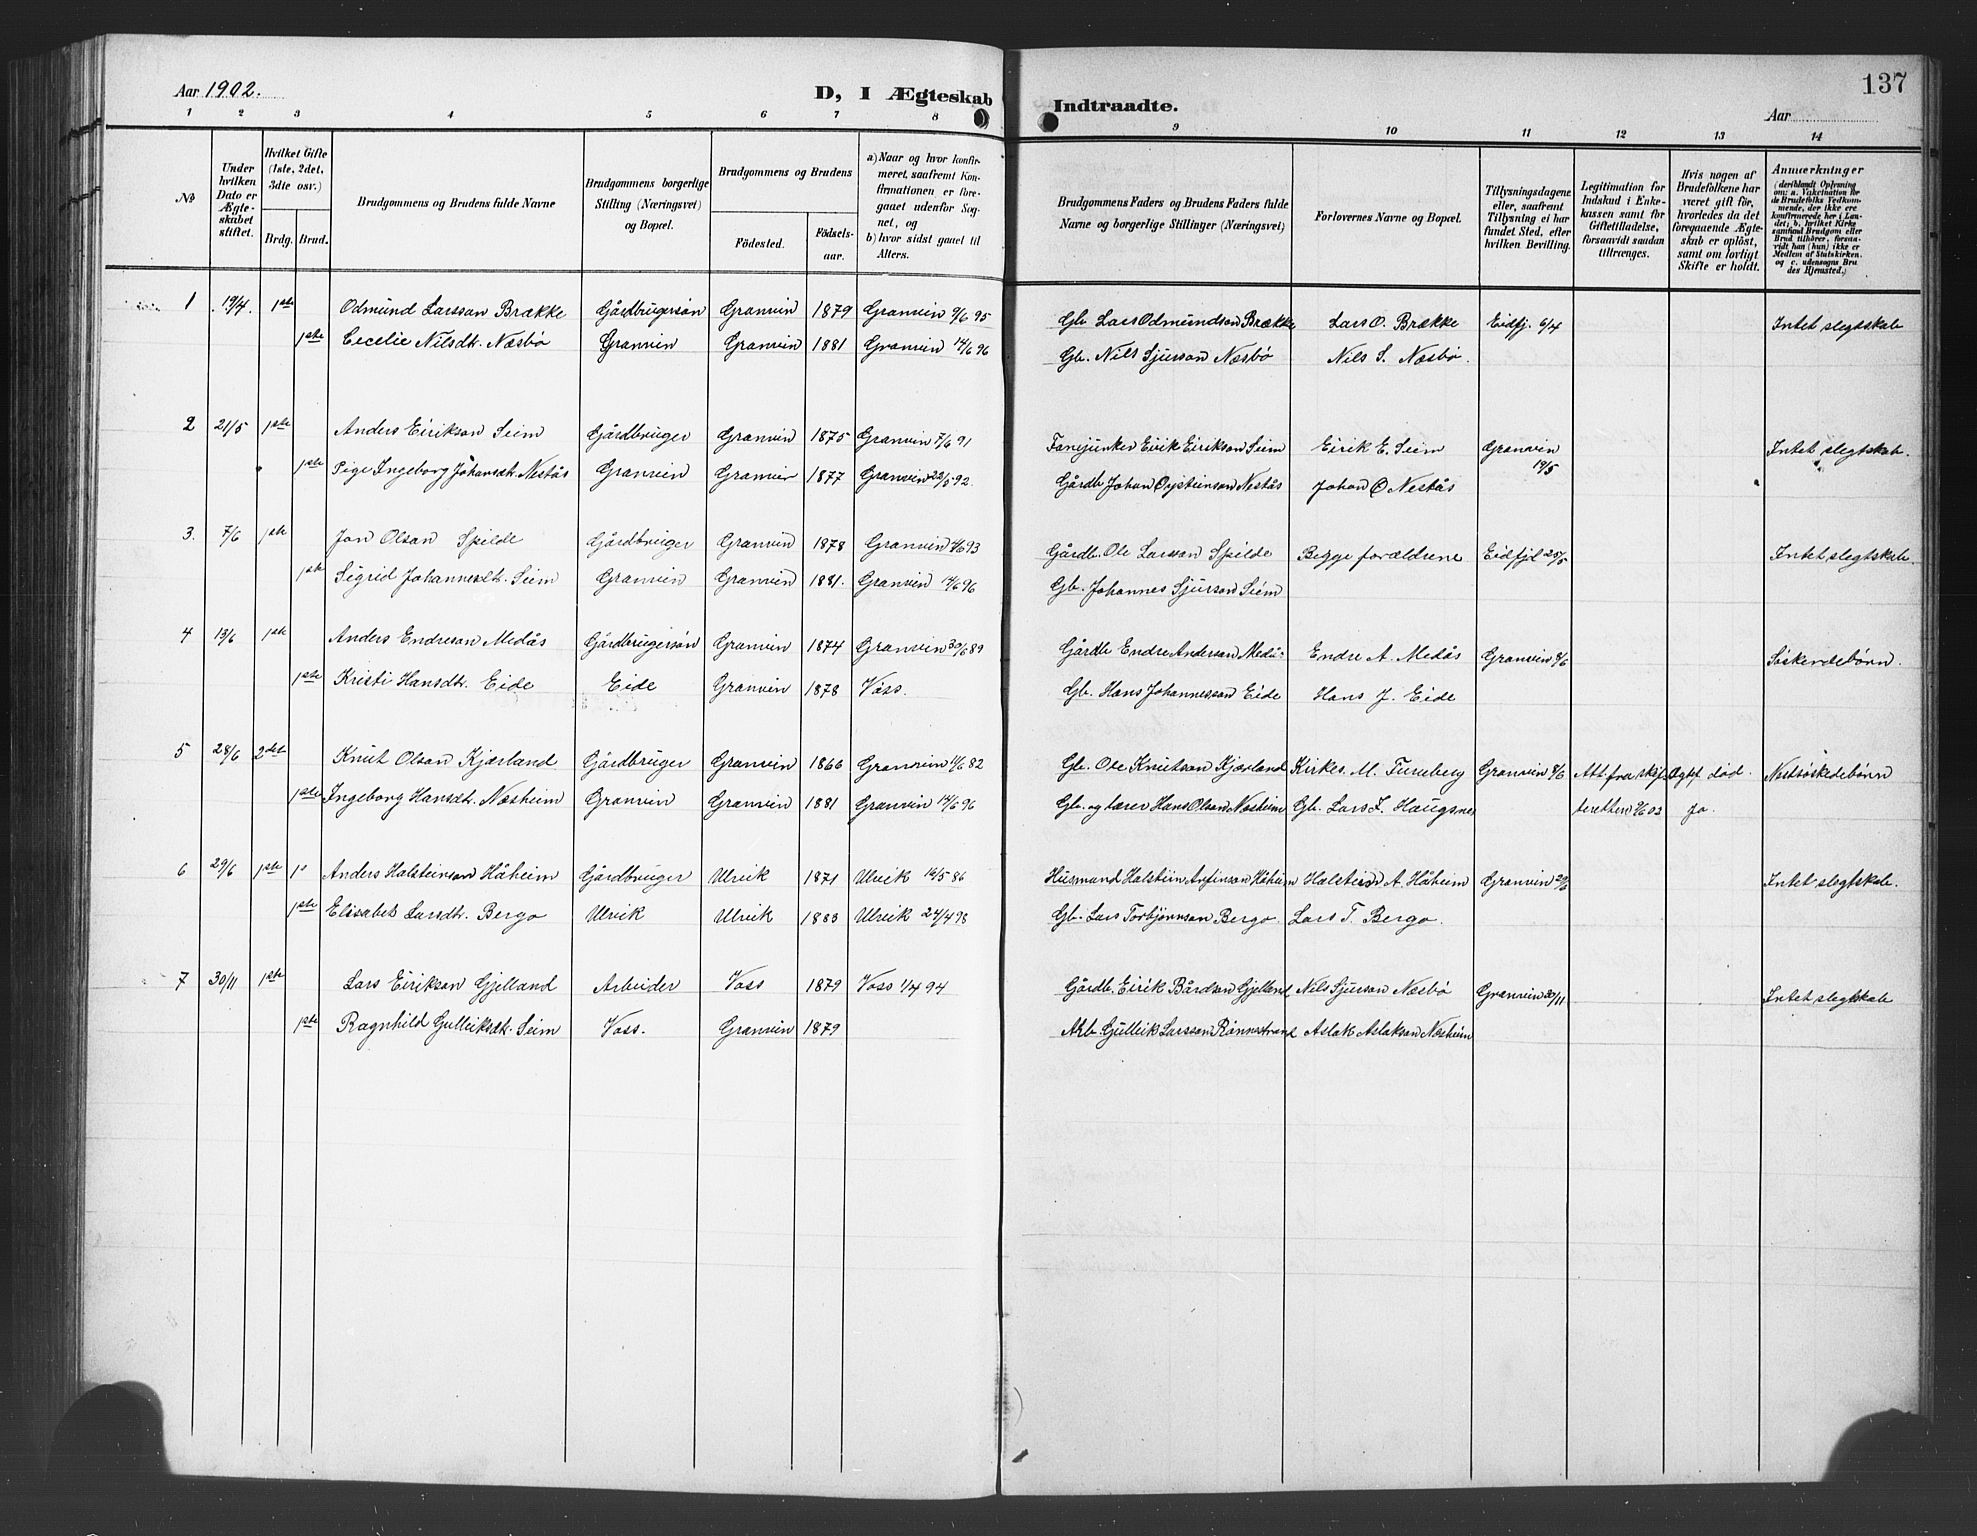 Aar 1902.
D, I Ægteskab Indtraadte.
137
Aar
1 2 3 4 5 6 7 8 9 10 11 12 13 14
№
Under hvilken Dato er Ægteskabet stiftet.
Hvilket Gifte (1ste, 2det, 3dte osv.)
Brdg. Brud.
Brudgommens og Brudens fulde Navne
Brudgommens borgerlige Stilling (Næringsvei) og Bopæl.
Brudgommens og Brudens
Fødested. Fødselsaar.
a) Naar og hvor konfirmeret, saafremt Konfirmationen er foregaaet udenfor Sognet, og
b) hvor sidst gaaet til Alters.
Brudgommens Faders og Brudens Faders fulde Navne og borgerlige Stillinger (Næringsvei)
Forlovernes Navne og Bopæl.
Tillysningsdagene eller, saafremt Tillysning ei har fundet Sted, efter hvilken Bevilling.
Legitimation for Indskud i Enkekassen samt for Giftetilladelse, forsaavidt saadan tiltrænges.
Hvis nogen af Brudefolkene har været gift før, hvorledes da det foregaaende Ægteskab er opløst, samt om lovligt Skifte er holdt.
Anmærkninger (deriblandt Oplysning om: a. Vakcination for de Brudefolks Vedkommende, der ikke ere konfirmerede her i Landet; b. hvilket Kirkesamfund Brudgom eller Brud tilhører, forsaavidt han (hun) ikke er Medlem af Statskirken, og c. udensogns Brudes Hjemsted.)
1 19/4. 1ste Odmund Larsson Brække Gårdbrugersøn Granvin 1879 Granvin 9/6 95 Gb. Lars Odmundson Brække Lars O. Brække Eidfj. 6/4 Intet slegtskab
1ste Cecelie Nilsdt. Næsbø Granvin Granvin 1881 Granvin 14/6 96 Gb. Nils Sjurson Næsbø Nils S. Næsbø.
2 21/5 1ste Anders Eirikson Seim Gårdbruger Granvin 1875 Granvin 7/6 91 Fanejunker Eirik Eirikson Seim Eirik E. Seim Granvin 19/5 Intet slegtskab.
1ste Pige Ingeborg Johansdt. Nestås Granvin Granvin 1877 Granvin 22/5 92. Gårdb Johan Oysteinson Nestås Johan O Nestås
3. 7/6 1ste Jon Olson Spilde Gårdbruger Granvin 1878 Granvin 93 Gårdb. Ole Larsson Spilde Begge forældrene Eidfjd 25/5 Intet slegtskab.
1ste Sigrid Johannesdt. Seim Granvin Granvin 1881. Granvin 14/6 96 Gb. Johannes Sjurson Seim
4 13/6 1ste Anders Endreson Medås Gårdbrugersøn Granvin 1874 Granvin 30/6 89 Gårdb Endre Anderson Medås Endre A. Medås Granvin 8/6 Søskendebørn.
1ste Kristi Hansdt. Eide Eide Granvin 1878 Voss. Gb. Hans Johannesson Eide Hans J. Eide
5 28/6 2det Knut Olson Kjærland Gårdbruger Granvin 1866 Granvin 11/6 82 Gb. Ole Knutson Kjærland Kirkes. M. Tureberg Granvin 8/6 Att. fra skifteretten 9/6 02 Ægtf. død. Ja. Nestsøskedebørn
1ste Ingeborg Hansdt. Næsheim Granvin Granvin 1881 Granvin 14/6 96 Gb. og lærer Hans Olson Næsheim Gb. Lars L. Haugsnes
6 29/6 1ste 1ᵒ Anders Halsteinson Håheim Gårdbruger Ulvik 1871 Ulvik 16/5 86 Husmand Halstein Anfinson Håheim Halstein A. Håheim Granvin Intet slegtskab.
1ste Elisabet Larsdt. Bergo Ulvik Ulvik 1883 Ulvik 24/4 98 Gb. Lars Torbjørnson Bergo. Lars T. Bergo.
7 30/11 1ste Lars Eirikson Gjelland Arbeider Voss 1879 Voss 1/4 94 Gårdb. Eirik Bårdson Gjelland Nils Sjurson Næsbø Granvin 30/11 Intet slegtskab
1ste Ragnhild Gulleiksdt. Seim Voss. Granvin 1879 Arb. Gulleik Larsson Rønnestrand Aslak Aslakson Næsheim